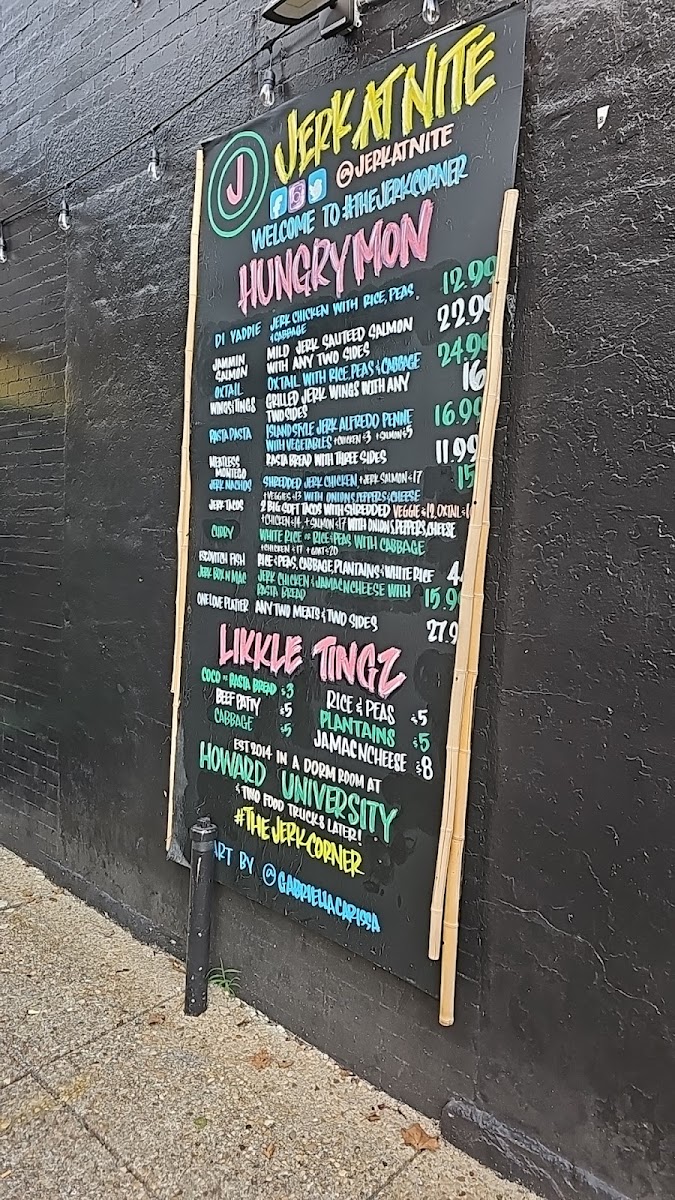 J
JERK AT NITE
@JERKATNITE
WELCOME TO #THEJERKCORNER
HUNGRY MON
DI YADDIE JERK CHICKEN WITH RICE, PEAS, 12.99
& CABBAGE
JAMMIN SALMON MILD JERK SAUTEED SALMON 22.99
WITH ANY TWO SIDES
OXTAIL OXTAIL WITH RICE, PEAS & CABBAGE 24.99
WINGS&TINGS GRILLED JERK WINGS WITH ANY 16
TWO SIDES
RASTA PASTA ISLAND STYLE JERK ALFREDO PENNE 16.99
WITH VEGETABLES +CHICKEN $3 +SALMON $5
MEATLESS MONTEGO RASTA BREAD WITH THREE SIDES 11.99
JERK NACHOS SHREDDED JERK CHICKEN +JERK SALMON $17 15
+VEGGIES $13 WITH ONIONS, PEPPERS & CHEESE
JERK TACOS 2 BIG SOFT TACOS WITH SHREDDED VEGGIE $12, OXTAIL
+CHICKEN $14, +SALMON $17 WITH ONIONS, PEPPERS, CHEESE
CURRY WHITE RICE OR RICE & PEAS WITH CABBAGE
+CHICKEN $17 +GOAT $20
ESCOVITCH FISH RICE & PEAS, CABBAGE, PLANTAINS & WHITE RICE
JERK BOX N MAC JERK CHICKEN & JAMACNCHEESE WITH 15.9
RASTA BREAD
ONE LOVE PLATTER ANY TWO MEATS & TWO SIDES 27.9
LIKKLE TINGZ
COCO OR RASTA BREAD $3
BEEF PATTY $5
CABBAGE $5
RICE & PEAS $5
PLANTAINS $5
JAMACNCHEESE $8
EST 2014 IN A DORM ROOM AT
HOWARD UNIVERSITY
& TWO FOOD TRUCKS LATER!
#THEJERKCORNER
ART BY @GABRIELLACARISSA